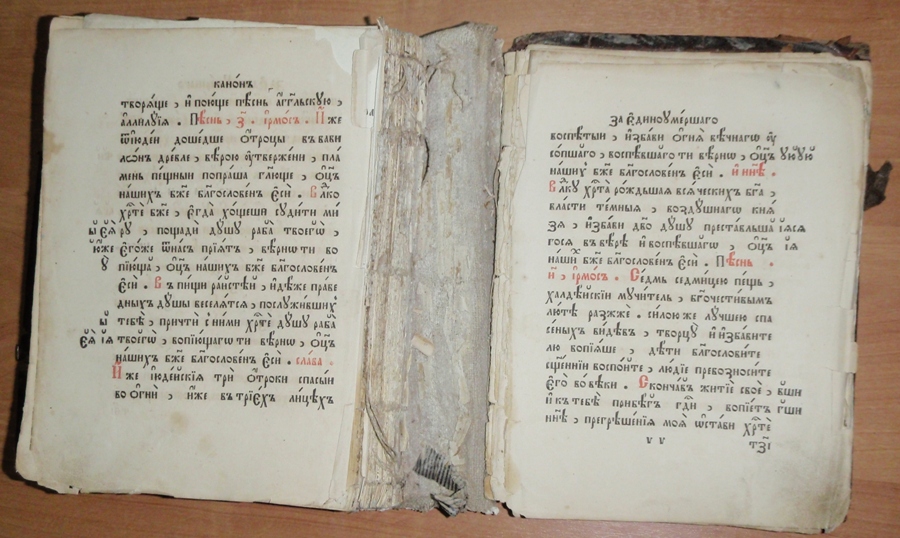 канѡ́нъ
творѧ́ще , и҆ пою́ще пѣ́снь а҆́гг҃льскую ,
а҆ллилу́їѧ . Пѣ́снь , з҃ . і҆рмо́съ . И҆́же
ѿ і҆ꙋде́и доше́дше ѻ҆́троцы въ вави
лѡ́нѣ дре́вле , вѣ́рою ᲂу҆твержени́ , пла́
мень пе́щныи попра́ша гл҃юще , ѻ҆ц҃ъ
на́шихъ бж҃е бл҃гослове́нъ є҆сѝ . Вл҃ко
хр҃тѐ бж҃е , є҆гда̀ хо́щеши сꙋди́ти ми́
ы҆ є҆ѧ̀ рꙋ , пощадѝ дꙋ́шꙋ раба̀ твоегѡ̀ ,
ю҆же є҆го́же ѿ на́съ прїѧ́тъ , вѣ́рнѡ ти во
ꙋ҆ пїю́ща , ѻ҆ц҃ъ на́шихъ бж҃е бл҃гослове́нъ
є҆сѝ . Въ пи́щи ра́истѣи , и҆дѣ́же пра́ве
дныхъ дꙋ́шы веселѧ́тсѧ , послꙋжи́вшихъ
ы҆ тебѣ̀ , причтѝ с ни́ми хр҃тѐ дꙋ́шꙋ раба̀
є҆ѧ̀ і҆ѧ твоегѡ̀ , вопїю́щаго ти вѣ́рнѡ , ѻ҆ц҃ъ
на́шихъ бж҃е бл҃гослове́нъ є҆сѝ . сла́ва .
И҆́же і҆ꙋде́йскїѧ трѝ ѻ҆́троки спасы́и
во ѻ҆гнѝ , и҆́же въ трїе́хъ ли́цѣхъ
за є҆диноꙋме́ршаго
воспѣ́тыи , и҆зба́ви ѻ҆гнѧ̀ вѣ́чнагѡ ᲂу҆
со́пшаго , воспѣ́вшаго ти вѣ́рнѡ , ѻ҆ц҃ъ ꙋю ꙋю
на́шихъ бж҃е бл҃гослове́нъ є҆сѝ . и҆ ны́нѣ .
Вл҃кꙋ хр҃та̀ ро́ждьшаѧ всѧ́ческихъ бг҃а ,
вла́сти те́мныѧ , воздꙋ́шнагѡ кнѧ́
зѧ , и҆зба́ви дв҃о дꙋ́шꙋ преста́вльша і҆ѧсѧ
госѧ въ вѣ́рѣ и҆ воспѣ́вшагѡ , ѻ҆ц҃ъ і҆ѧ
на́шихъ бж҃е бл҃гослове́нъ є҆сѝ . Пѣ́снь .
и҃ , і҆рмо́съ . Се́дмь седми́цею пе́щь ,
халде́йскїи мꙋчи́тель , бг҃очести́вымъ
лю́тѣ разжжѐ . си́лою же лꙋ́чшею спа
се́ныхъ ви́дѣвъ , творцꙋ̀ и҆ и҆зба́вите
лю вопїѧ́ше , дѣ́ти бл҃гослови́те
сщ҃е́нїи воспо́йте , лю́дїе превозноси́те
є҆го̀ во вѣ́ки . Сконча́въ житїѐ своѐ , вши
и҆ къ тебѣ̀ прибѣ́гъ гд҃и , вопїе́тъ гши
нн҃ѣ , прегрѣше́нїѧ моѧ̀ ѡ҆ста́ви хр҃тѐ
тз҃і